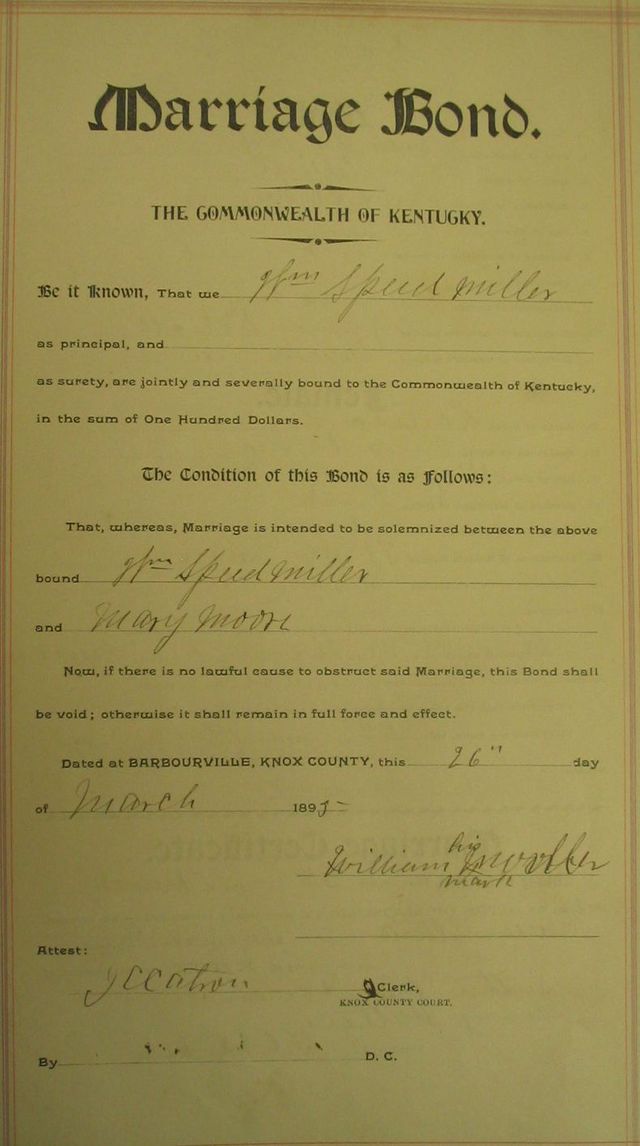 Marriage Bond.
THE COMMONWEALTH OF KENTUCKY.
Be it Known, That we Wm Speed Miller
as principal, and
as surety, are jointly and severally bound to the Commonwealth of Kentucky,
in the sum of One Hundred Dollars.
The Condition of this Bond is as Follows:
That, whereas, Marriage is intended to be solemnized between the above
bound Wm Speed Miller
and Mary Moore
Now, if there is no lawful cause to obstruct said Marriage, this Bond shall
be void; otherwise it shall remain in full force and effect.
Dated at BARBOURVILLE, KNOX COUNTY, this 26" day
of March 1895
his
William X
mark
Attest:
J C Catron Clerk,
KNOX COUNTY COURT.
By D. C.